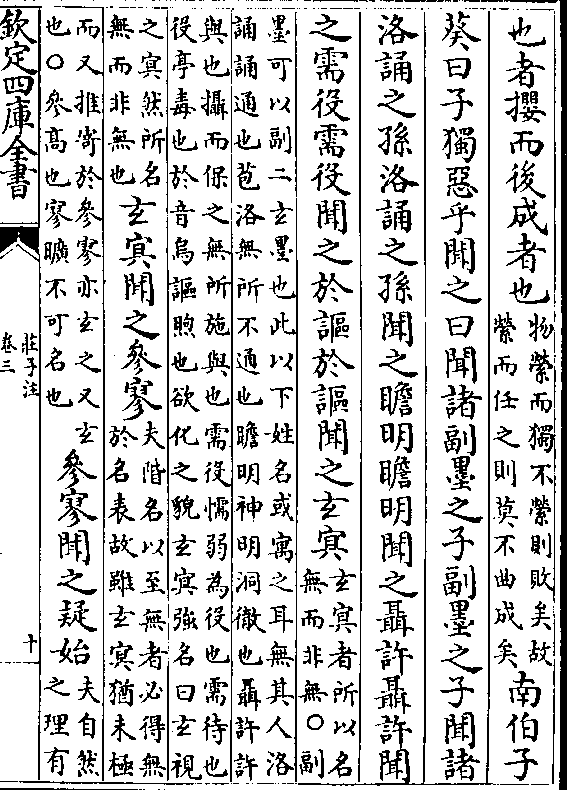 也者攖而後成者也物縈而獨不縈則敗矣故縈而任之則莫不曲成矣南伯子
葵曰子獨惡乎聞之曰聞諸副墨之子副墨之子聞諸
洛誦之孫洛誦之孫聞之瞻明瞻明聞之聶許聶許聞
之需役需役聞之於謳於謳聞之玄冥玄冥者所以名無而非無〇副
墨可以副二玄墨也此以下姓名或寓之耳無其人洛
誦誦通也苞洛無所不通也瞻明神明洞徹也聶許許
與也攝而保之無所施與也需役懦弱為役也需待也
役亭毒也於音烏謳煦也欲化之貌玄冥強名曰玄視
之冥然所名無而非無也玄冥聞之參寥夫階名以至無者必得無於名表故雖玄冥猶未極
而又推寄於參寥亦玄之又玄也〇參高也寥曠不可名也參寥聞之疑始夫自然之理有
欽定四庫全書
莊子注
卷三
十